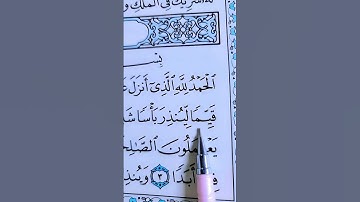 له شريك في الملك و
بِسْ
الْحَمْدُ لِلَّهِ الَّذِي أَنْزَلَ عَ
قَيِّمًا لِيُنْذِرَ بَأْسًا شَ
يَعْمَلُونَ الصَّالِحَ
أَبَدًا ٣ وَيُنْذِ